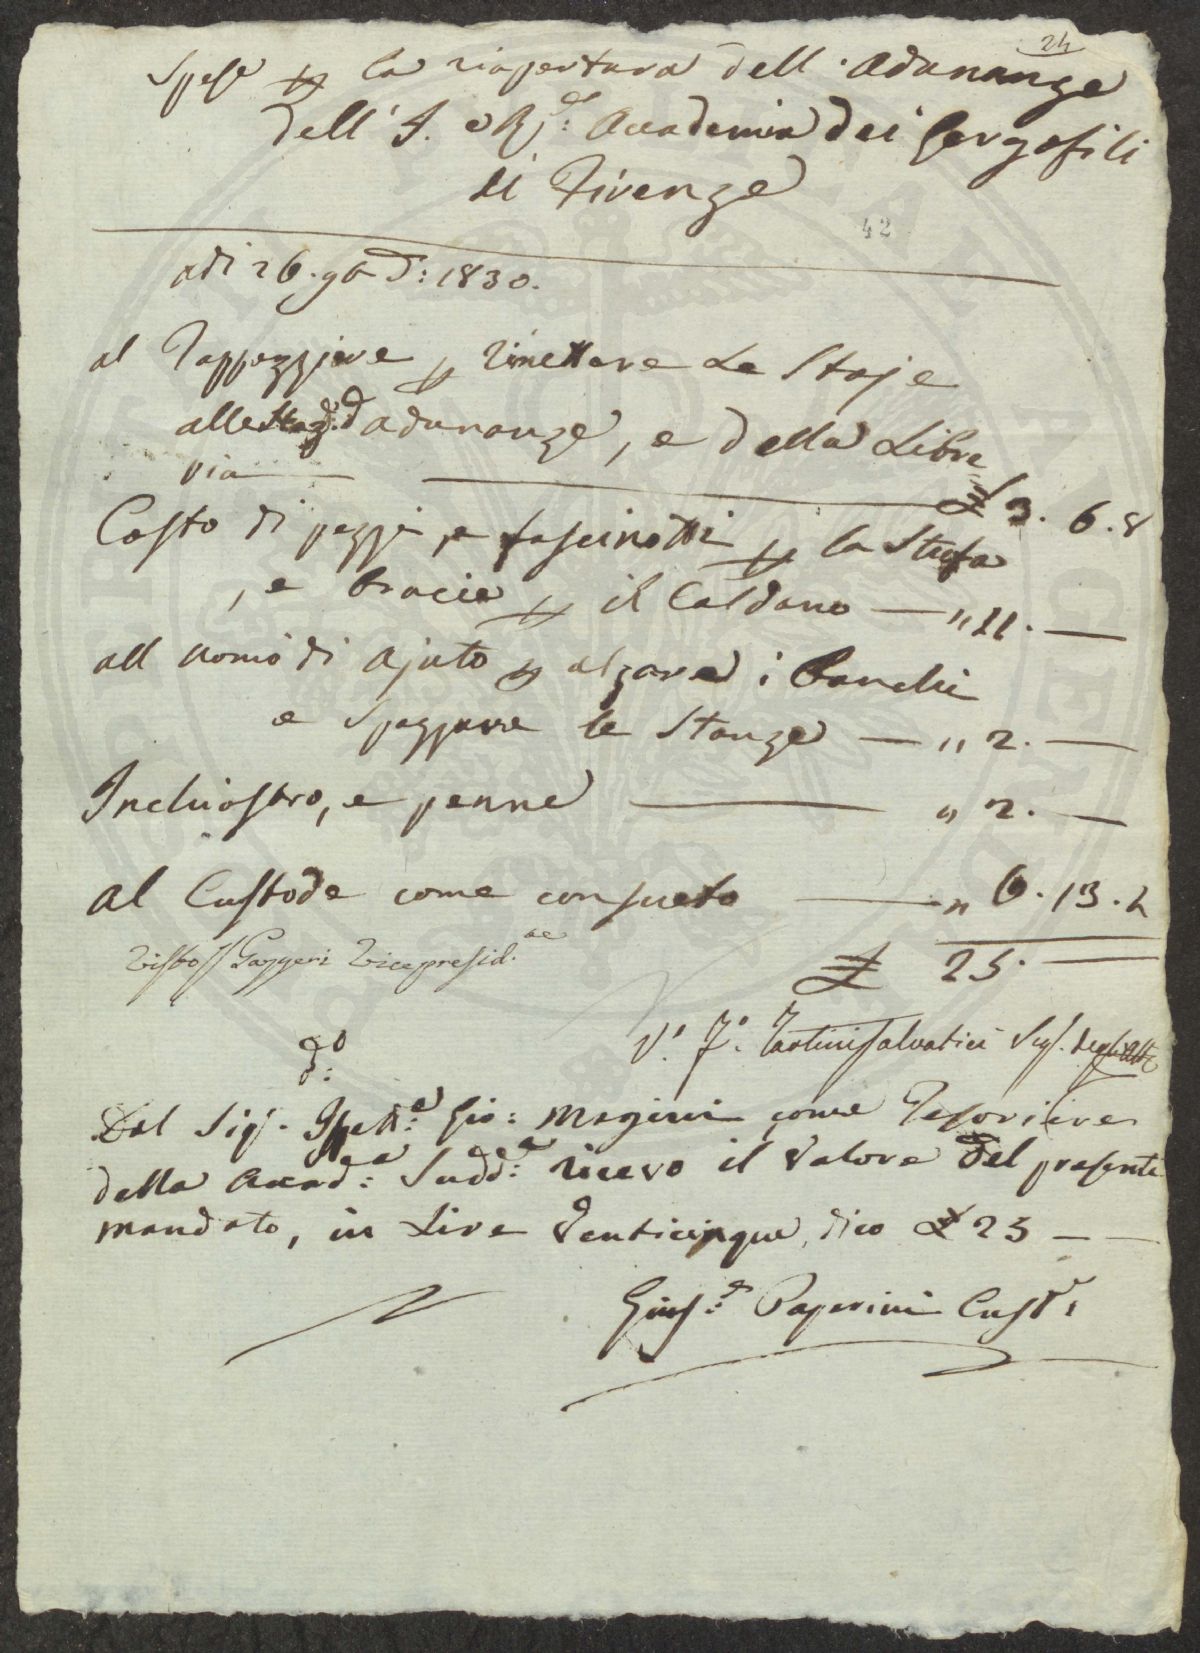 24
Spese p la riapertura dell' Adunanze
dell' I. e R.e: Accademia dei Gergofili
di Firenze
42
adi 26. 9bre: 1830.
al Tappezziere p rimettere le Stoje
alle d'adunanze, e della Libre
ria £ 3. 6. 8
Costo di pezzi, e fascinotti p la Stufa
, e bracie p il Caldano — " 11. —
all uomo di Ajuto p alzare i banchi
e spazzare le Stanze — " 2. —
Inchiostro, e penne — " 2. —
al Custode come consueto — " 6. 13. 4
£ 25. —
Visto Gazzeri Vicepresid.te
V.o F.o Tartini Salvatici Seg. degli Atti
d:o
Dal Sig. Ispett:e Gio: Magini come Tesoriere
della Accad:a Sudd:a ricevo il Valore del presente
mandato, in Lire Venticinque, dico £ 25 — —
Gius:e Paperini Cust.e